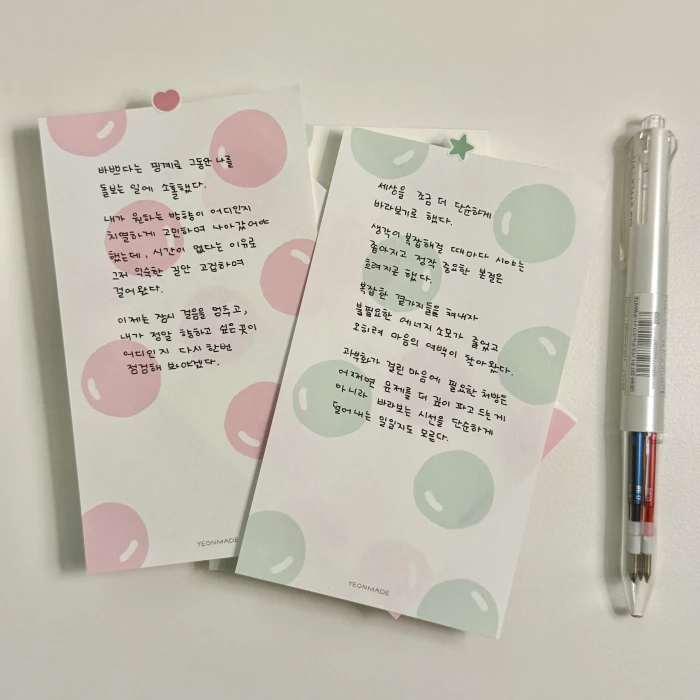 바쁘다는 핑계로 그동안 나를
돌보는 일에 소홀했다.
내가 원하는 방향이 어디인지
치열하게 고민하며 나아갔어야
했는데, 시간이 없다는 이유로
그저 익숙한 길만 고집하며
걸어왔다.
이제는 잠시 걸음을 멈추고,
내가 정말 향하고 싶은 곳이
어디인지 다시 한번
점검해 봐야겠다.
YEONMADE
세상을 조금 더 단순하게
바라보기로 했다.
생각이 복잡해질 때마다 시야는
좁아지고 정작 중요한 본질은
흐려지곤 했다.
복잡한 곁가지들을 쳐내자
불필요한 에너지 소모가 줄었고
오히려 마음의 여백이 찾아왔다.
과부화가 걸린 마음에 필요한 처방은
어쩌면 문제를 더 깊이 파고 드는게
아니라 바라보는 시선을 단순하게
덜어내는 일일지도 모른다.
YEONMADE